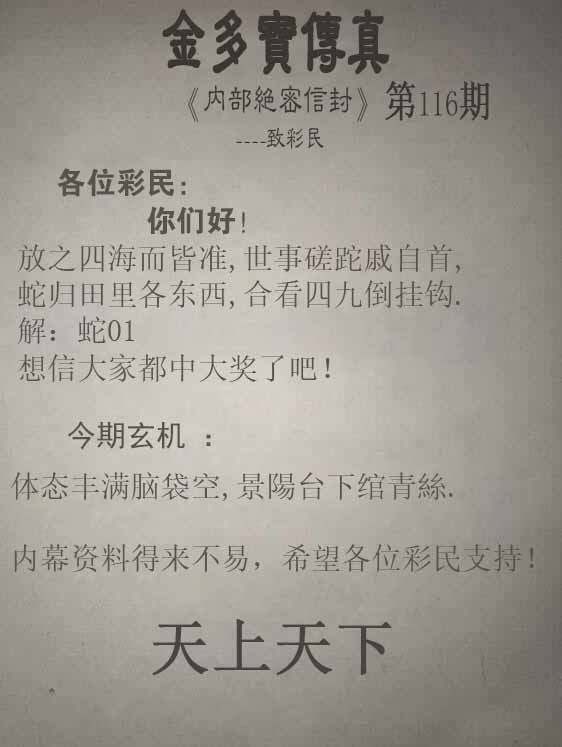 金多寶傳真
《内部絶密信封》第116期
----致彩民
各位彩民:
你们好!
放之四海而皆准,世事磋跎戚自首,
蛇归田里各东西,合看四九倒挂钩.
解：蛇01
想信大家都中大奖了吧！
今期玄机 ：
体态丰满脑袋空,景陽台下绾青絲.
内幕资料得来不易，希望各位彩民支持！
天上天下